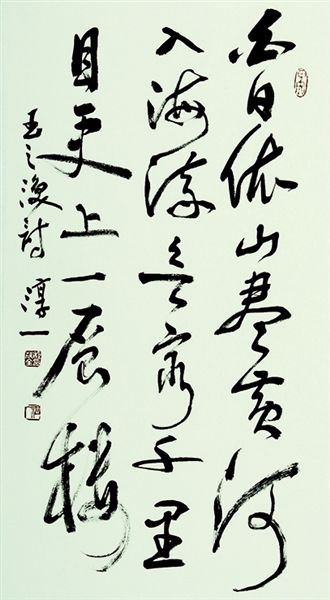 白日依山尽黄河
入海流欲穷千里
目更上一层楼
王之涣诗 淳一